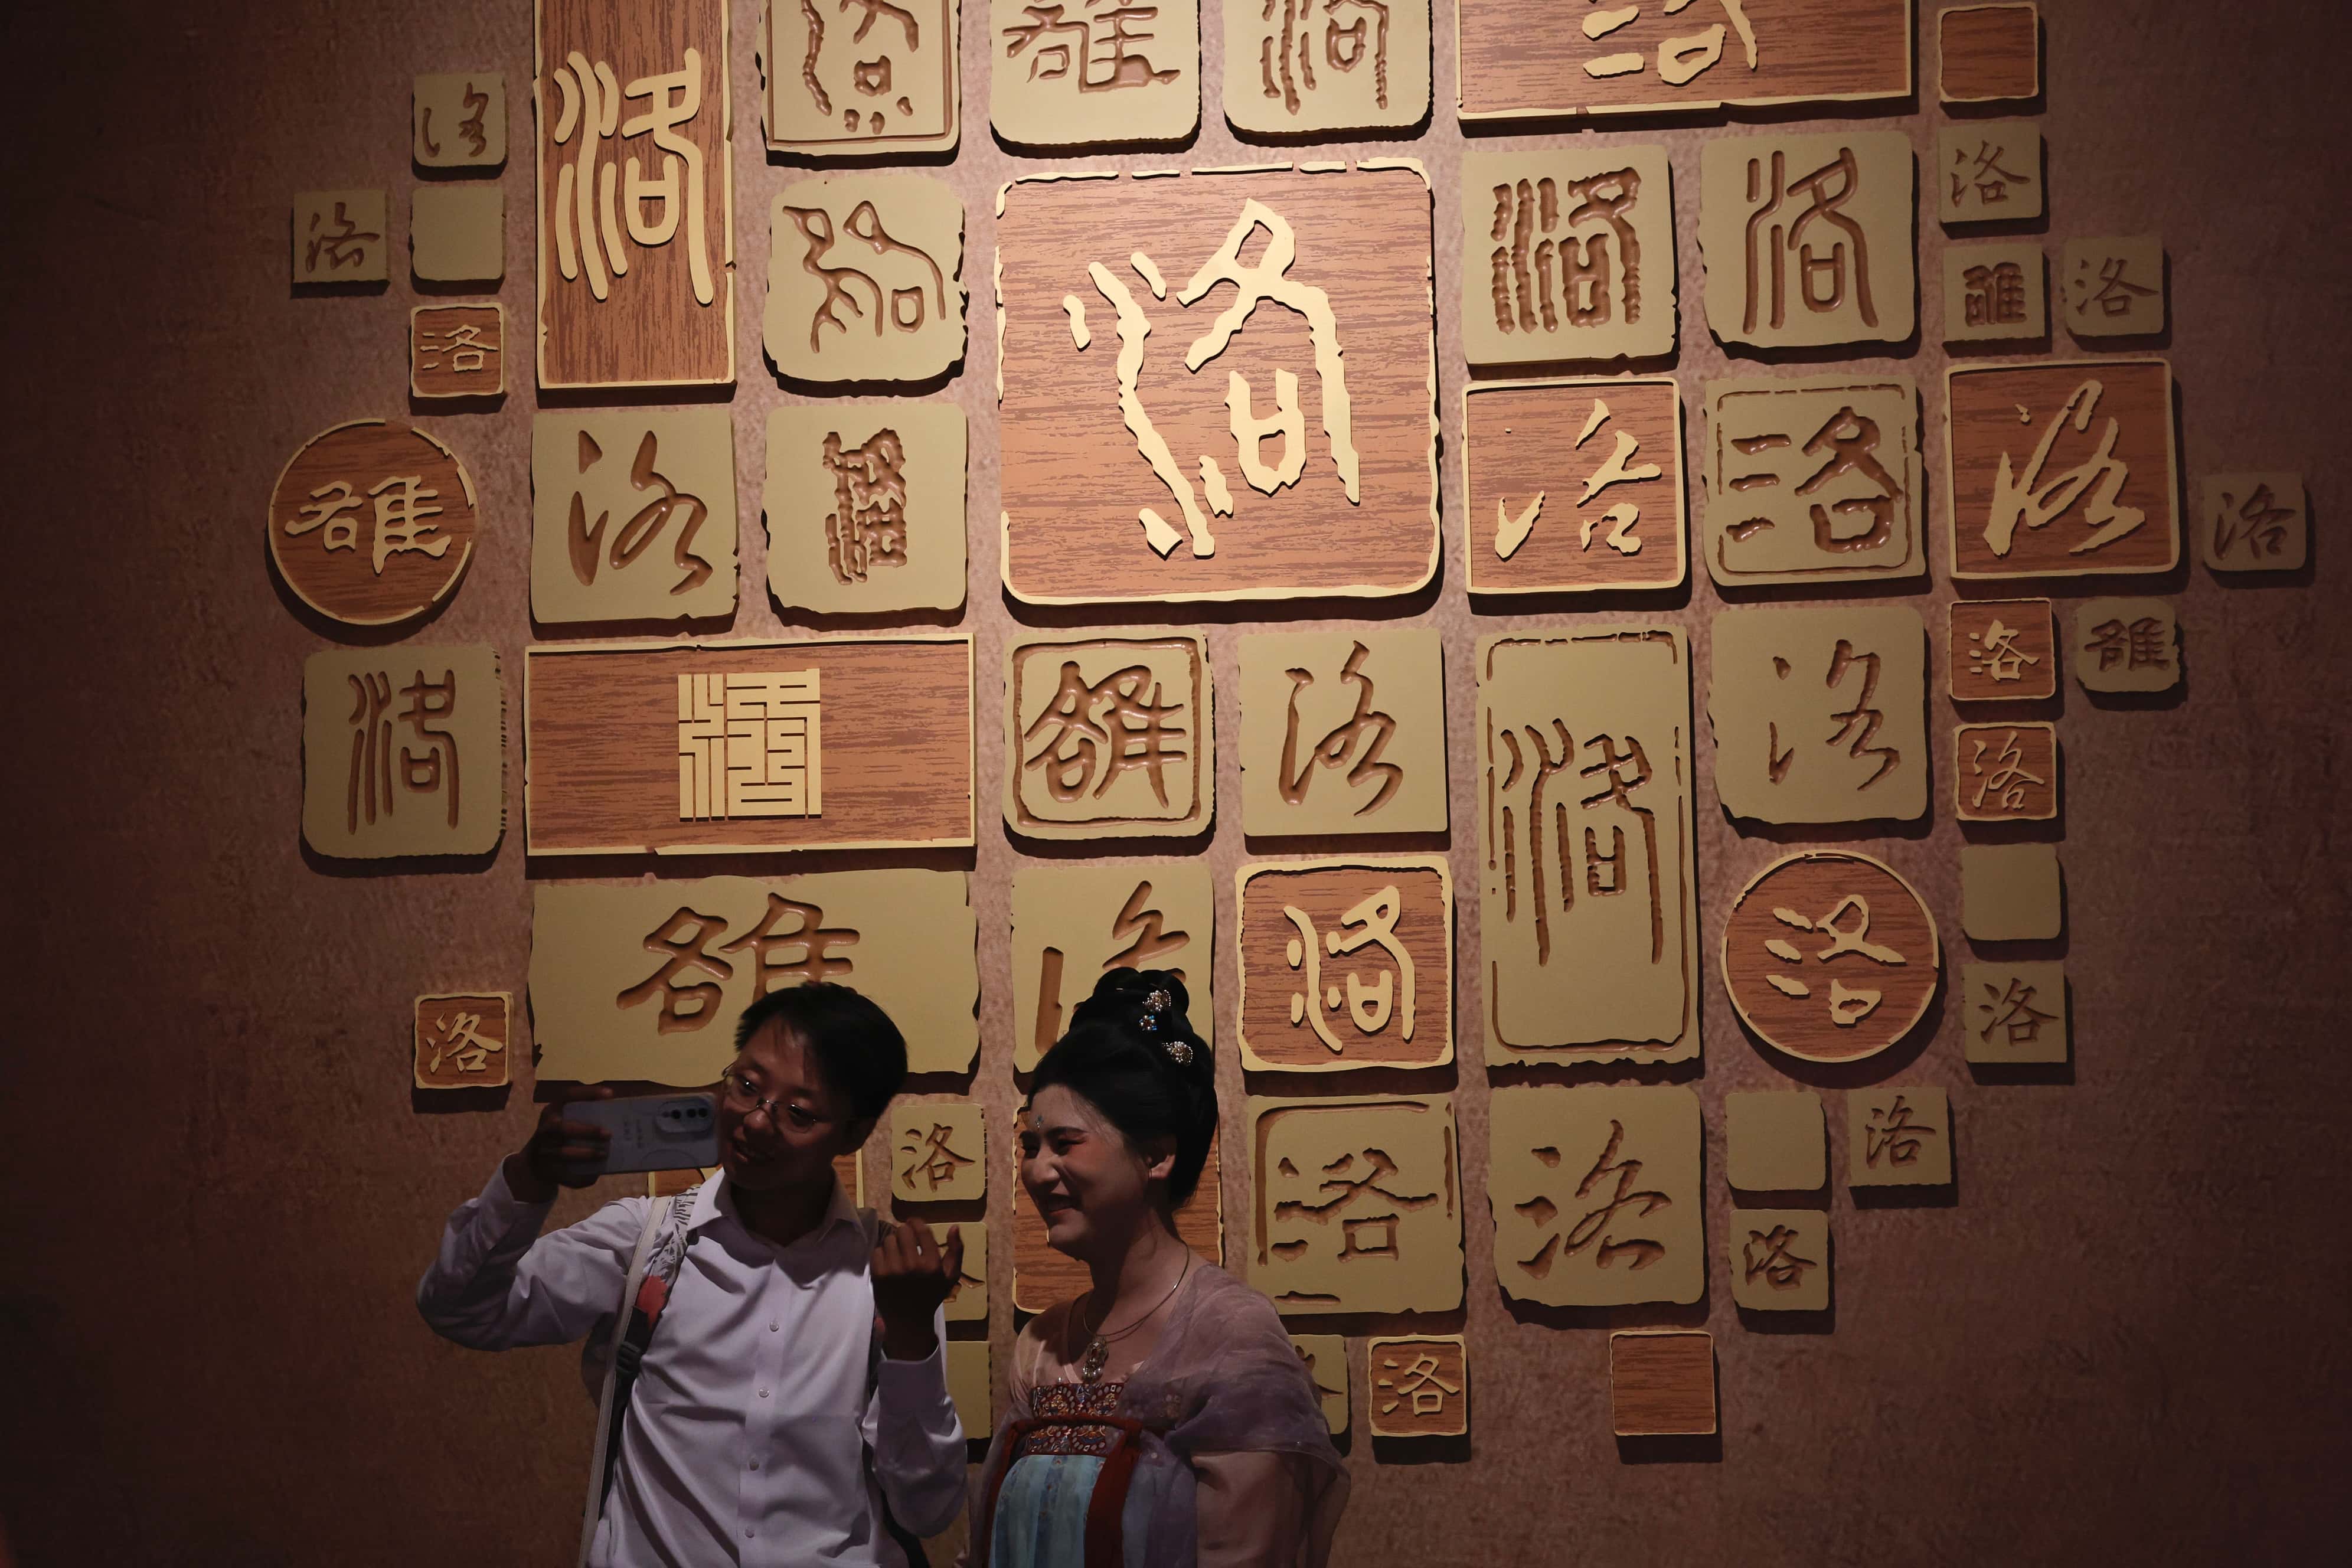 洛
洛
雒
洛
洛
洛
洛
洛
洛
洛
雒
洛
洛
雒
洛
洛
洛
洛
洛
洛
洛
雒
洛
洛
洛
洛
雒
洛
雒
洛
洛
洛
洛
洛
洛
洛
洛
洛
洛